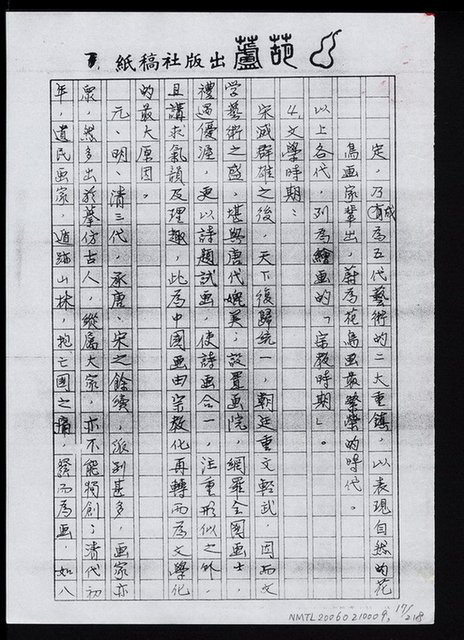 葫蘆出版社稿紙
定,乃有成為五代藝術的二大重鎮,以表現自然的花
鳥画家輩出,蔚為花鳥画最繁榮的時代。
以上各代,列為繪画的「宗教時期」。
4.文學時期:
宋滅群雄之後,天下復歸統一,朝廷重文輕武,因而文
学藝術之盛,堪與唐代媲美;設置画院,網羅全國画士,
禮遇優渥,更以詩題試画,使詩画合一,注重形似之外,
且講求氣韻及理趣,此為中國画由宗教化再轉而為文學化
的最大原因。
元、明、清三代,承唐、宋之餘續,派別甚多,画家亦
眾,然多出於摹仿古人,縱屬大家,亦不能獨創;清代初
年,遺民画家,遁跡山林,抱亡國之痛,發而為画,如八
NMTL20060210009, 17/218